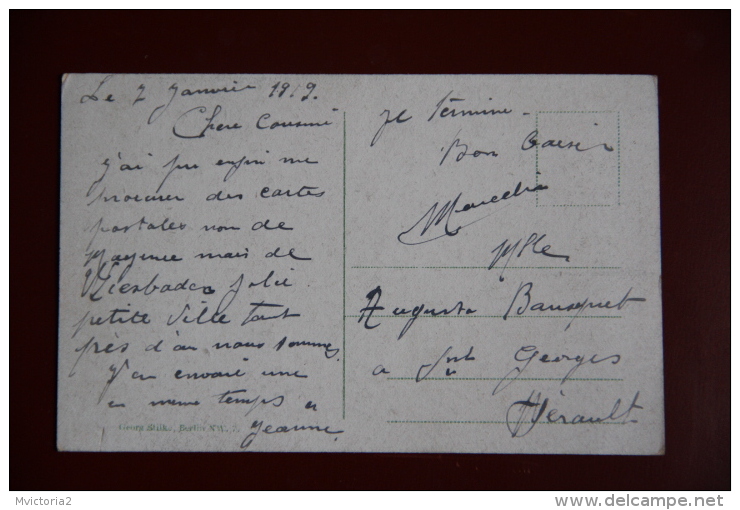 Le 7 Janvier 1919.
Chere Cousine
J'ai pu enfin me
procurer des cartes
postales non de
Mayence mais de
Wiesbaden Jolie
petite Ville tout
près d'ou nous sommes,
J'en envoie une
en meme temps a
Jeanne.
Je termine.
Bon Baiser
Mlle
Augusta Bousquet
a Snt Georges
Hérault
Georg Stilke, Berlin NW. 7.
Mvictoria2
http://www.delcampe.net